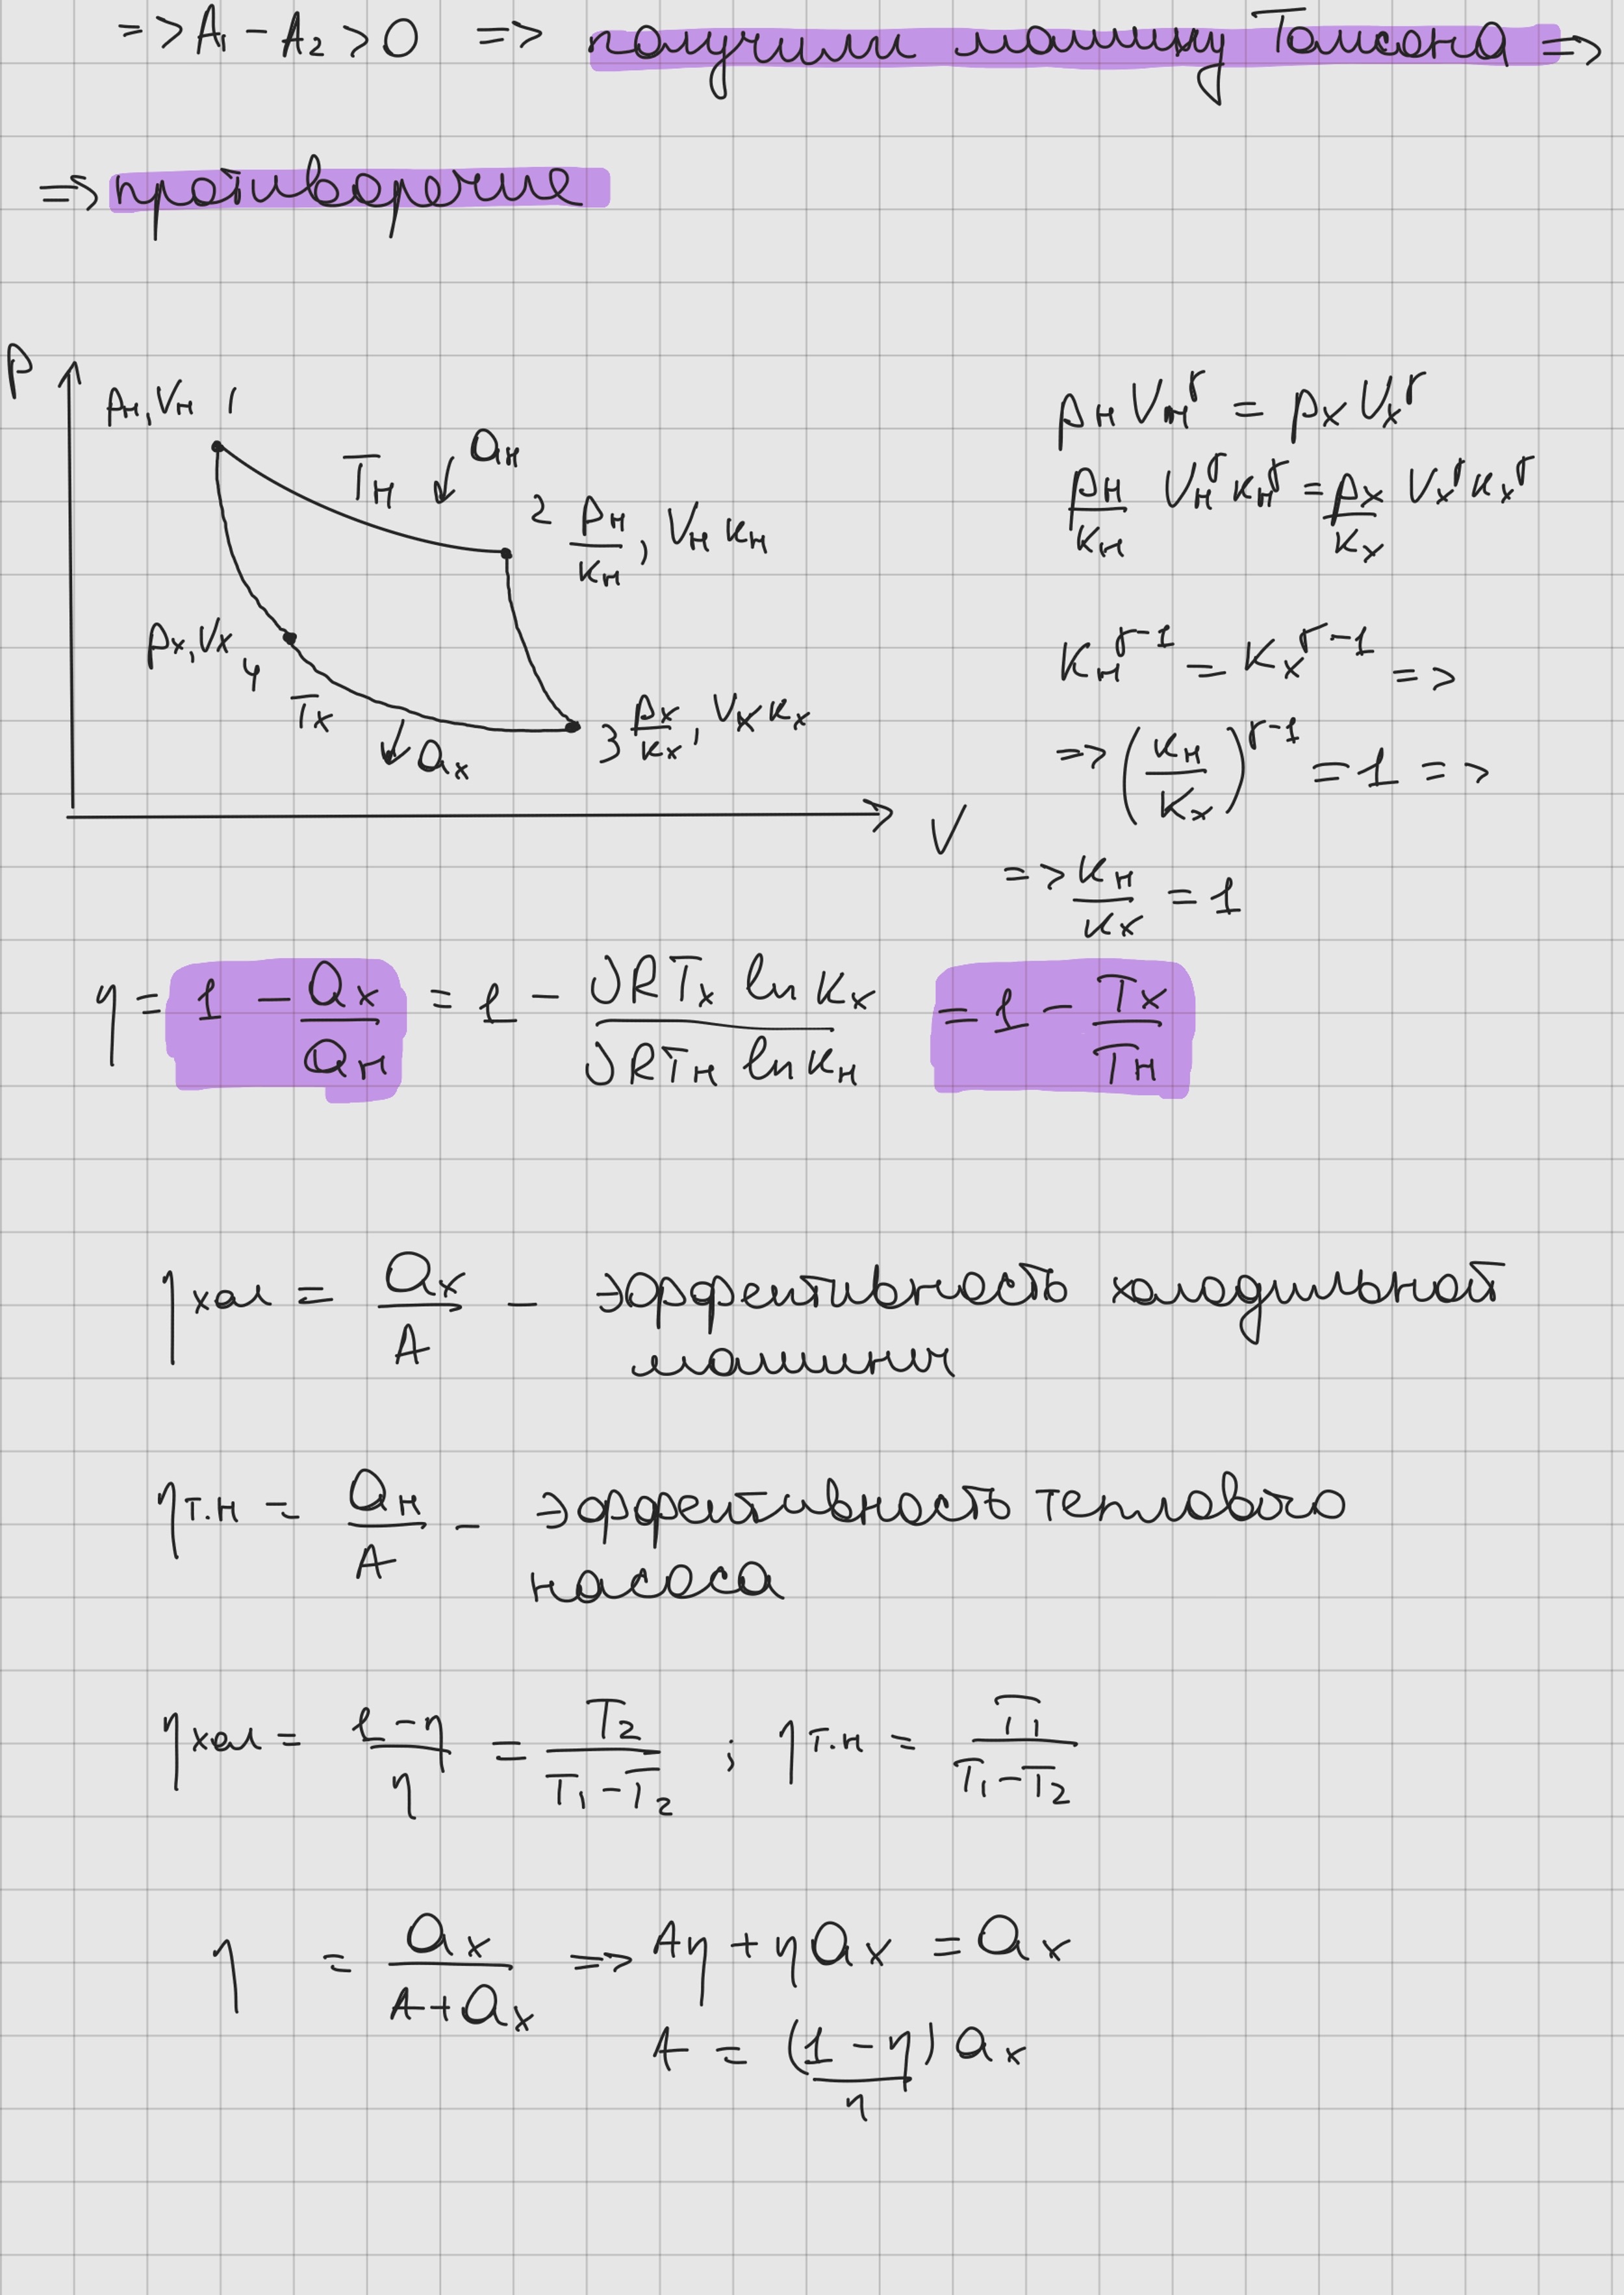 => A₁ - A₂ > 0 => получили машину Томсона =>
=> противоречие
P
Pн, Vн 1
Tн ↓ Qн
2 Pн/Kн, Vн Kн
Pх, Vх 4
Tх
3 Pх/Kх, Vх Kх
↓ Qх
V
Pн Vн^γ = Pх Vх^γ
Pн/Kн Vн^γ Kн^γ = Pх/Kх Vх^γ Kх^γ
Kн^(γ-1) = Kх^(γ-1) =>
=> (Kн/Kх)^(γ-1) = 1 =>
=> Kн/Kх = 1
η = 1 - Qх/Qн = 1 - νRTх ln Kх / νRTн ln Kн = 1 - Tх/Tн
ηхол = Qх/A - эффективность холодильной
машины
ηт.н = Qн/A - эффективность теплового
насоса
ηхол = (1-η)/η = T₂/(T₁-T₂) ; ηт.н = T₁/(T₁-T₂)
η = Qх/(A+Qх) => Aη + ηQх = Qх
A = (1-η)/η Qх